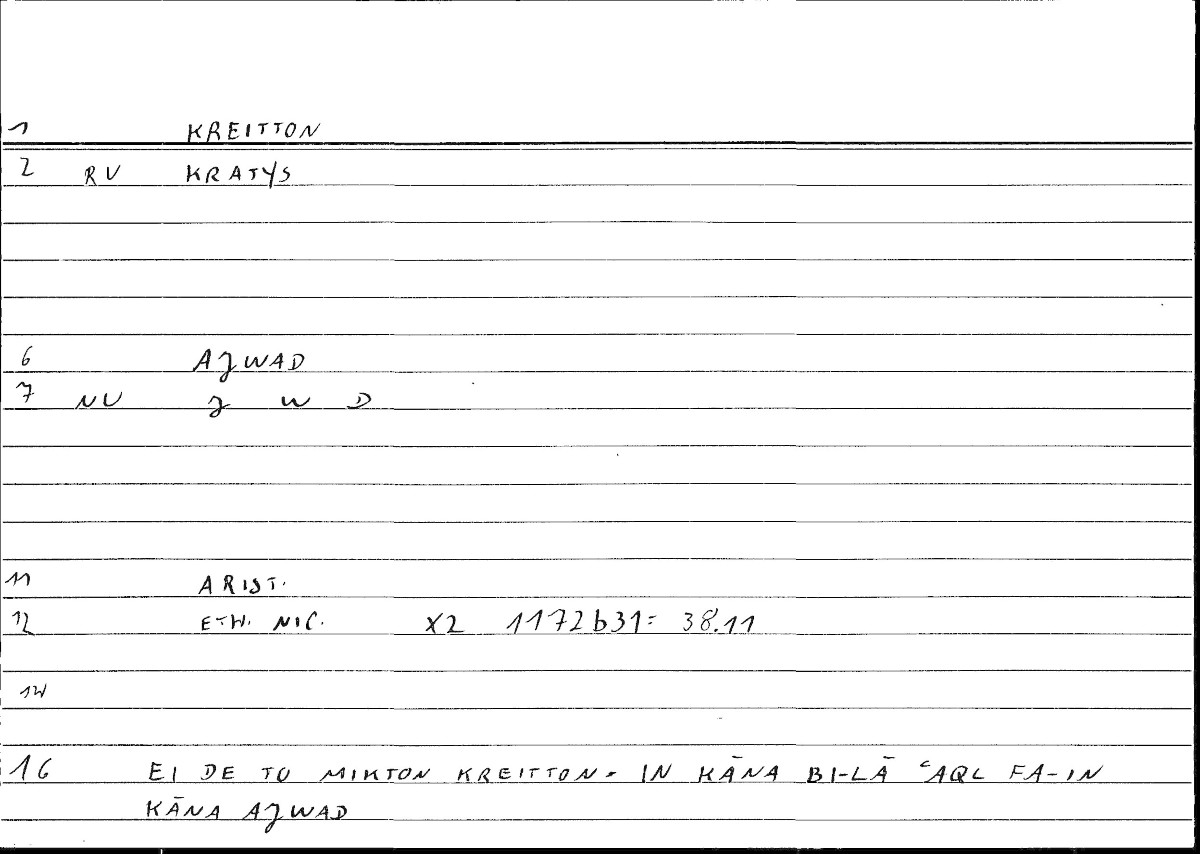 1 KREITTON
2 RV KRATYS
6 AJWAD
7 NU J W D
11 ARIST.
12 ETH. NIC. X2 1172b31= 38.11
14
16 EI DE TO MIKTON KREITTON. IN KĀNA BI-LĀ ʿAQL FA-IN
KĀNA AJWAD